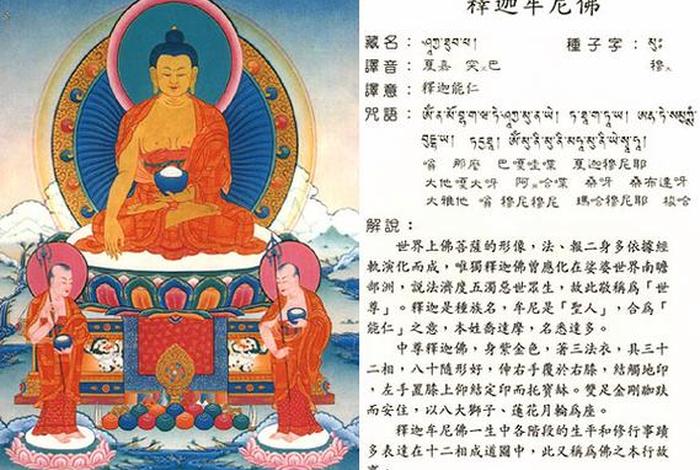 釋迦牟尼佛
藏名：ཤཱཀྱ་ཐུབ་པ། 種子字：མུཿ
譯音：夏嘉 突巴 穆
譯意：釋迦能仁
咒語：
嗡 那麼 巴嘎哇喋 夏迦穆尼耶
大他嘎大呀 阿 哈喋 桑呀 桑布達呀
大雅他 嗡 穆尼穆尼 瑪哈穆尼耶 梭哈
解說：
世界上佛菩薩的形像，法、報二身多依據經
軌演化而成，唯獨釋迦佛曾應化在娑婆世界南瞻
部洲，說法濟度五濁惡世眾生，故此敬稱爲「世
尊」。釋迦是種族名，牟尼是「聖人」，合爲「
能仁」之意，本姓喬達摩，名悉達多。
中尊釋迦佛，身紫金色，著三法衣，具三十
二相，八十隨形好，伸右手覆於右膝，結觸地印
，左手置膝上仰結定印而托寶缽。雙足金剛跏趺
而安住，以八大獅子、蓮花月輪爲座。
釋迦牟尼佛一生中各階段的生平和修行事蹟
多表達在十二相成道圖中，此又稱爲佛之本行故